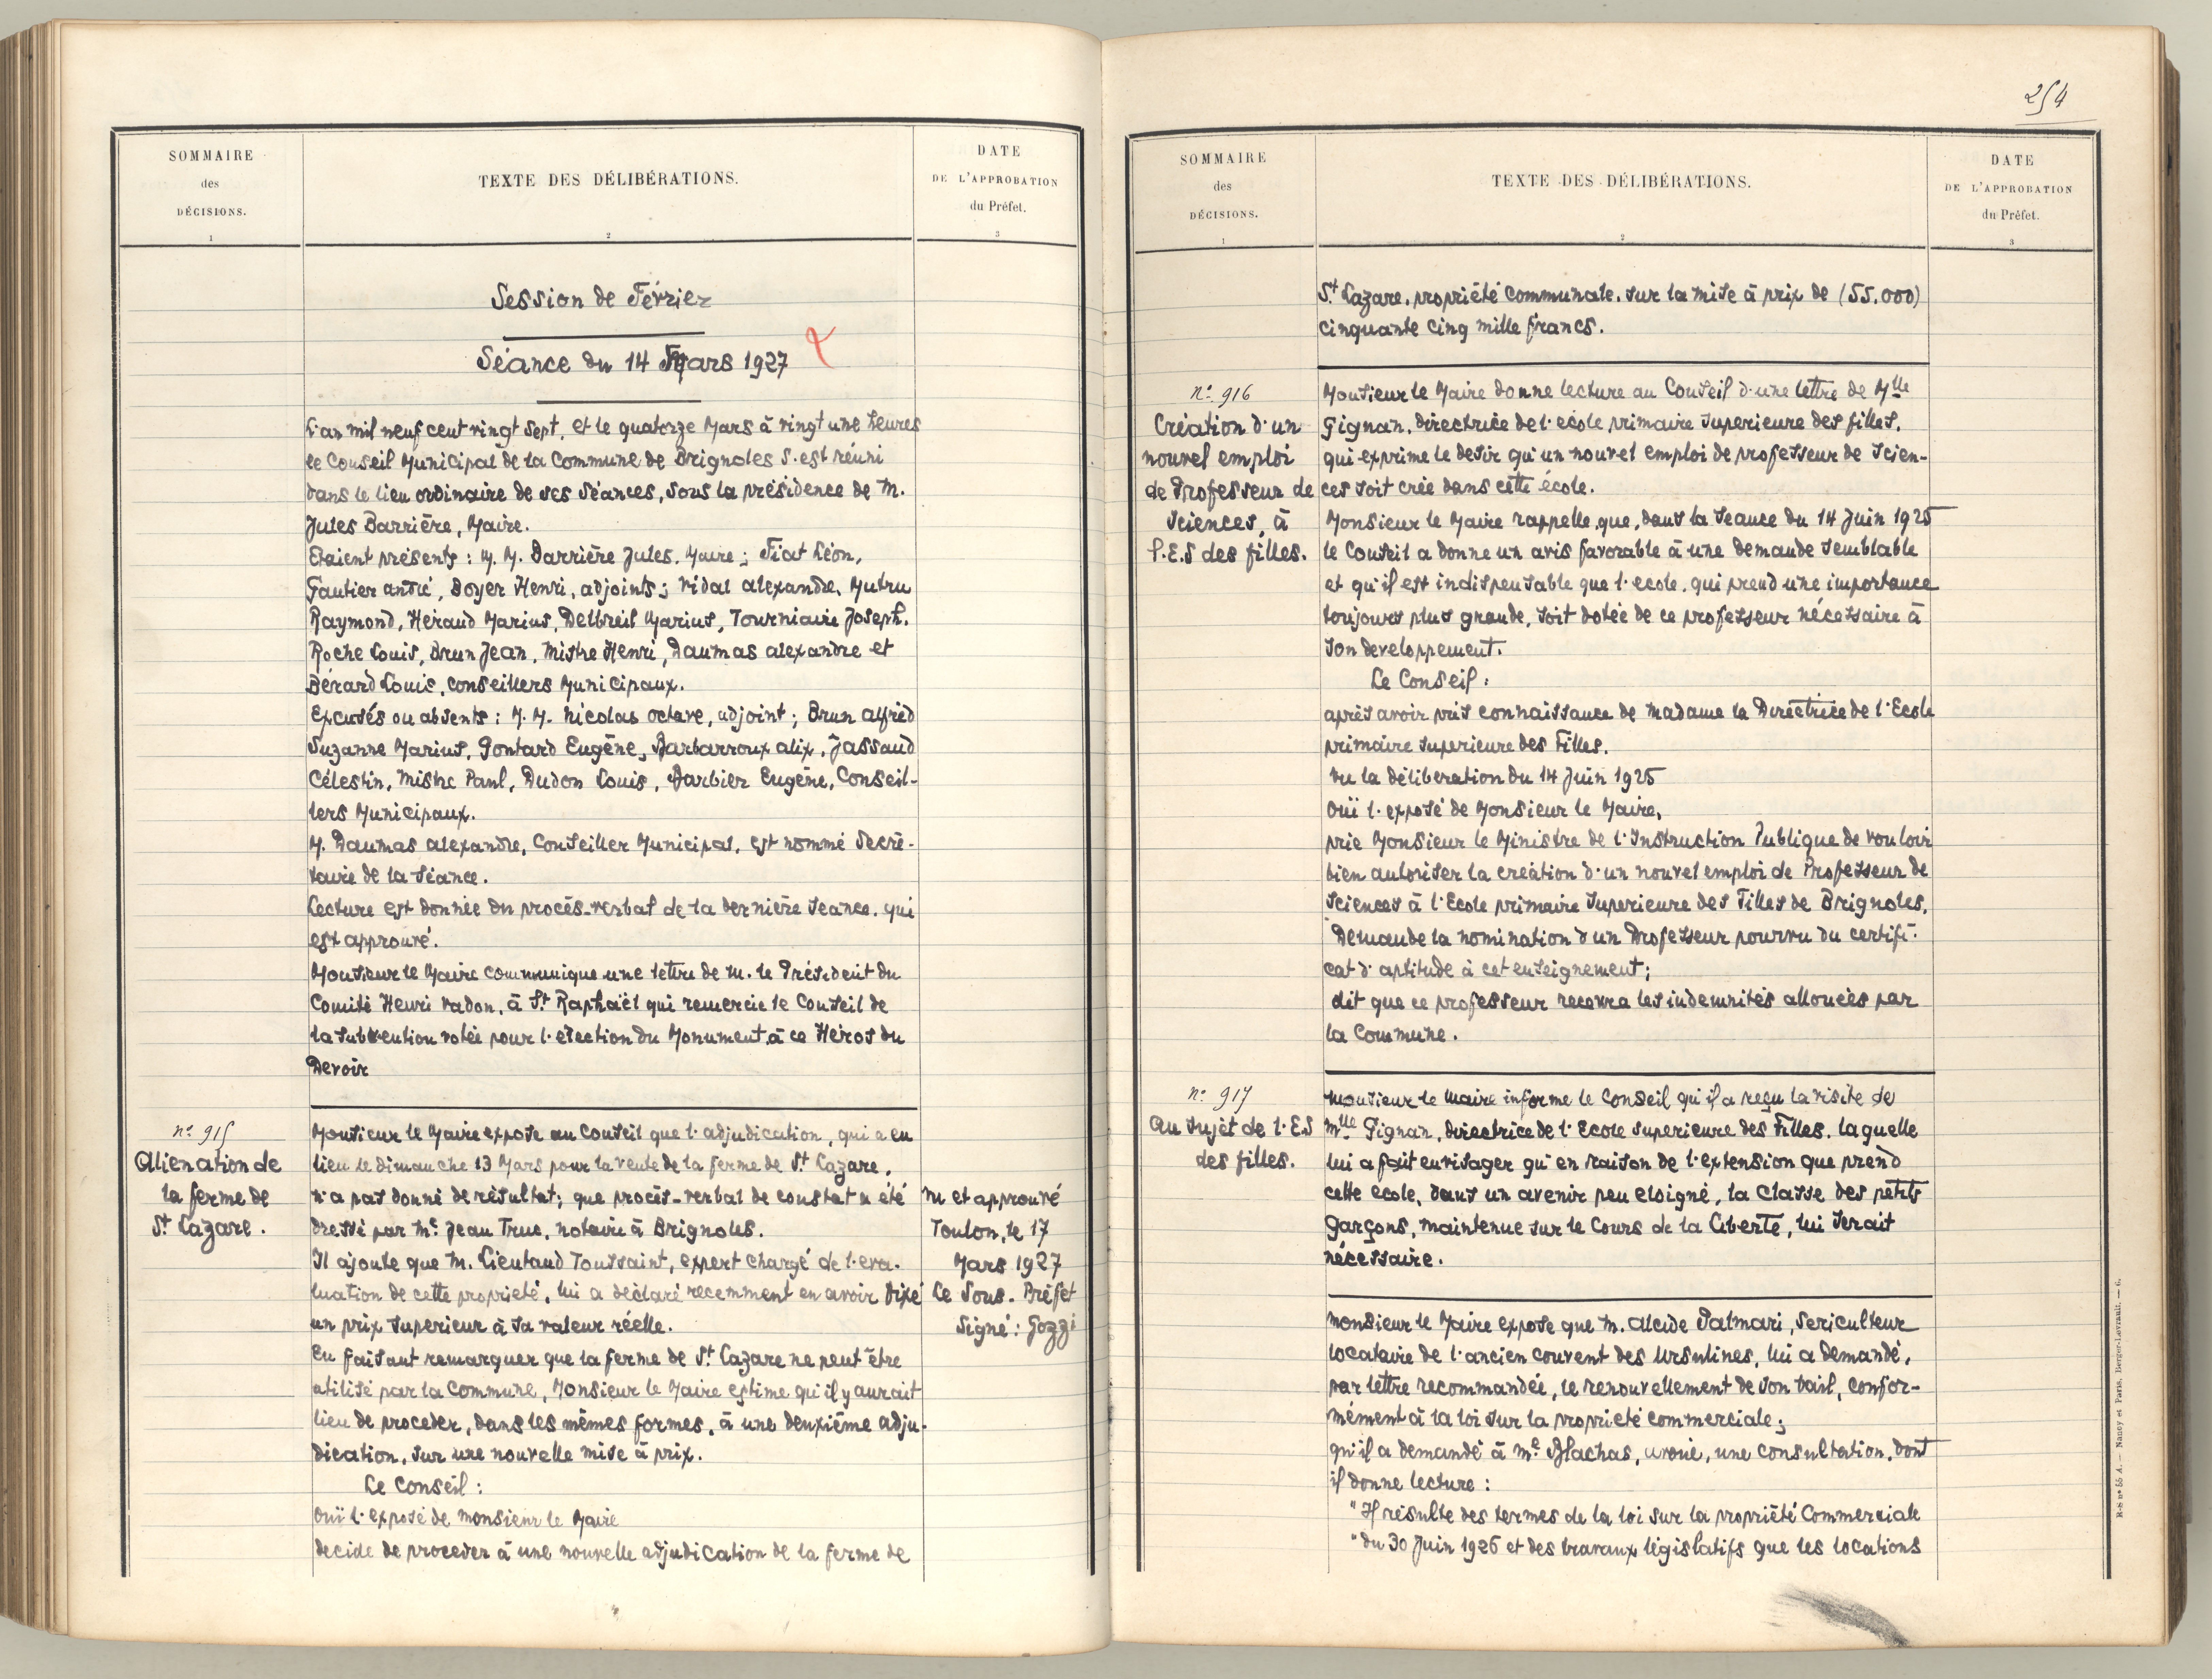 SOMMAIRE
des
DÉCISIONS.
1
TEXTE DES DÉLIBÉRATIONS.
2
DATE
DE L'APPROBATION
du Préfet.
3
Session de Février
Séance du 14 Mars 1927
L'an mil neuf cent vingt sept, et le quatorze Mars à vingt une heures
le Conseil Municipal de la Commune de Brignoles s'est réuni
dans le lieu ordinaire de ses séances, sous la présidence de M.
Jules Barrière, Maire.
Etaient présents : M. M. Barrière Jules, Maire ; Fiat Léon,
Gautier André, Boyer Henri, adjoints ; Vidal Alexandre, Mutru
Raymond, Héraud Marius, Delbreil Marius, Tourniaire Joseph,
Roche Louis, Brun Jean, Mistre Henri, Daumas Alexandre et
Bérard Louis, conseillers Municipaux.
Excusés ou absents : M. M. Nicolas Octave, adjoint ; Brun Alfred
Suzanne Marius, Gontard Eugène, Barbarroux Alix, Jassaud
Célestin, Mistre Paul, Dudon Louis, Barbier Eugène, Conseil-
lers Municipaux.
M. Daumas Alexandre, Conseiller Municipal, est nommé Secré-
taire de la séance.
Lecture est donnée du procès-verbal de la dernière séance, qui
est approuvé.
Monsieur le Maire communique une lettre de M. le Président du
Comité Henri Vadon, à St Raphaël qui remercie le Conseil de
la subvention votée pour l'érection du Monument à ce Héros du
Devoir
n° 915
Alienation de
la ferme de
St Lazare.
Monsieur le Maire expose au Conseil que l'adjudication, qui a eu
lieu le dimanche 13 Mars pour la vente de la ferme de St Lazare,
n'a pas donné de résultat ; que procès-verbal de constat a été
dressé par Me Jean Truc, notaire à Brignoles.
Il ajoute que M. Lieutaud Toussaint, expert chargé de l'eva-
luation de cette proprieté, lui a déclaré recemment en avoir fixé
un prix superieur à sa valeur réelle.
En faisant remarquer que la ferme de St Lazare ne peut être
utilisé par la Commune, Monsieur le Maire estime qu'il y aurait
lieu de proceder, dans les mêmes formes, à une deuxième adju-
dication, sur une nouvelle mise à prix.
Le Conseil :
Ouï l'exposé de Monsieur le Maire
decide de proceder à une nouvelle adjudication de la ferme de
Vu et approuvé
Toulon, le 17
Mars 1927
Le Sous-Préfet
Signé : Gozzi
254
SOMMAIRE
des
DÉCISIONS.
1
TEXTE DES DÉLIBÉRATIONS.
2
DATE
DE L'APPROBATION
du Préfet.
3
St Lazare, propriété communale, sur la mise à prix de (55.000)
cinquante cinq mille francs.
n° 916
Création d'un
nouvel emploi
de Professeur de
sciences, à
P.E.S des filles.
Monsieur le Maire donne lecture au Conseil d'une lettre de Mlle
Gignan, directrice de l'ecole primaire superieure des filles,
qui exprime le desir qu'un nouvel emploi de professeur de scien-
ces soit crée dans cette école.
Monsieur le Maire rappelle que, dans la seance du 14 Juin 1925
le Conseil a donne un avis favorable à une demande semblable
et qu'il est indispensable que l'ecole, qui prend une importance
toujours plus grande, soit dotée de ce professeur nécessaire à
son developpement.
Le Conseil :
après avoir pris connaissance de Madame la Directrice de l'Ecole
primaire superieure des Filles.
Vu la déliberation du 14 Juin 1925
Ouï l'exposé de Monsieur le Maire,
prie Monsieur le Ministre de l'Instruction Publique de vouloir
bien autoriser la création d'un nouvel emploi de Professeur de
sciences à l'Ecole primaire Superieure des Filles de Brignoles,
Demande la nomination d'un Professeur pourvu du certifi-
cat d'aptitude à cet enseignement ;
dit que ce professeur recevra les indemnités allouées par
la Commune.
n° 917
Au sujet de l'E.S
des filles.
Monsieur le Maire informe le Conseil qu'il a reçu la visite de
Mlle Gignan, directrice de l'Ecole superieure des Filles, laquelle
lui a fait envisager qu'en raison de l'extension que prend
cette ecole, dans un avenir peu eloigné, la classe des petits
garçons, maintenue sur le Cours de la Liberté, lui serait
nécessaire.
Monsieur le Maire expose que M. Alcide Palmari, Sericulteur
locataire de l'ancien couvent des Ursulines, lui a demandé,
par lettre recommandée, le renouvellement de son bail, confor-
mément à la loi sur la proprieté commerciale ;
qu'il a demandé à Me Blachas, avoué, une consultation, dont
il donne lecture :
"Il résulte des termes de la loi sur la propriété Commerciale
"du 30 Juin 1926 et des travaux législatifs que les locations
R-S n° 55 A. — Nancy et Paris, Berger-Levrault. — 6.